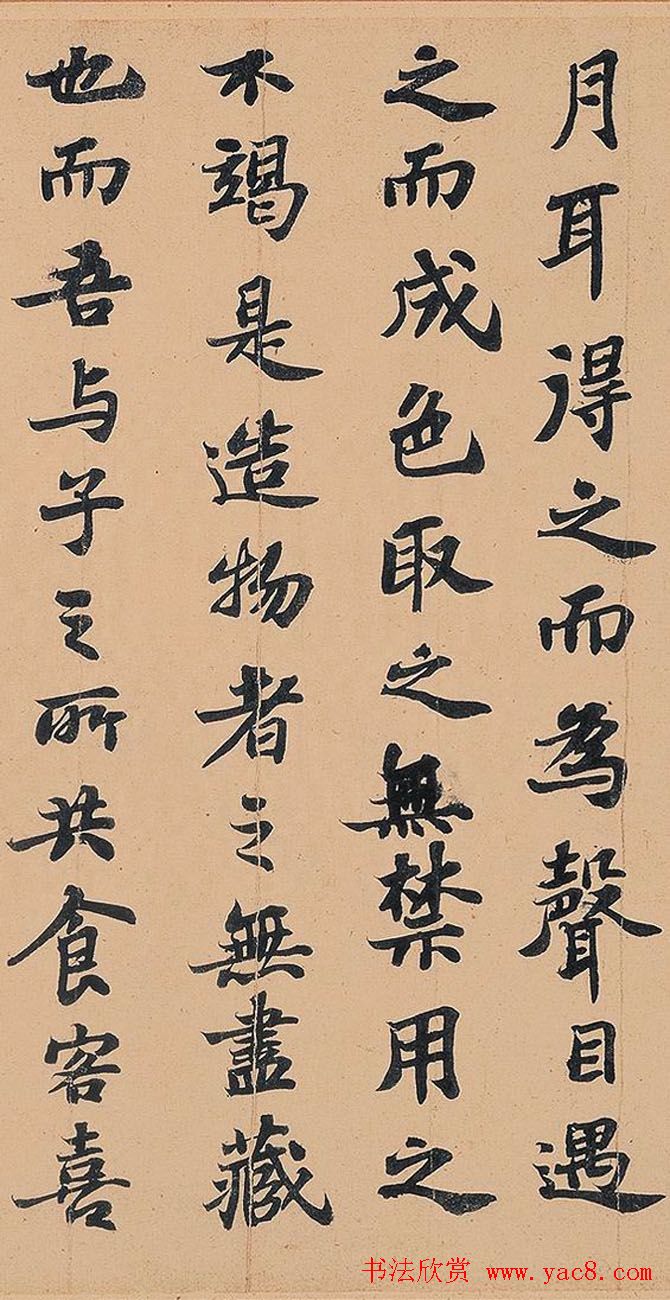 月耳得之而為聲目遇
之而成色取之無禁用之
不竭是造物者之無盡藏
也而吾与子之所共食客喜
书法欣赏 www.yac8.com